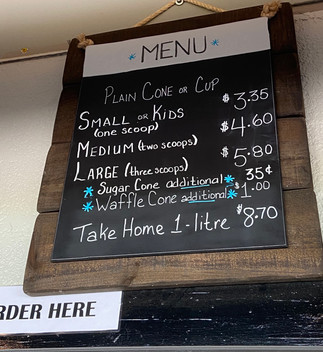 * MENU *
PLAIN CONE OR CUP
SMALL OR KIDS $3.35
(one scoop)
MEDIUM (two scoops) $4.60
LARGE (three scoops) $5.80
* Sugar Cone additional * 35¢
* Waffle Cone additional * $1.00
Take Home 1-litre $8.70
RDER HERE